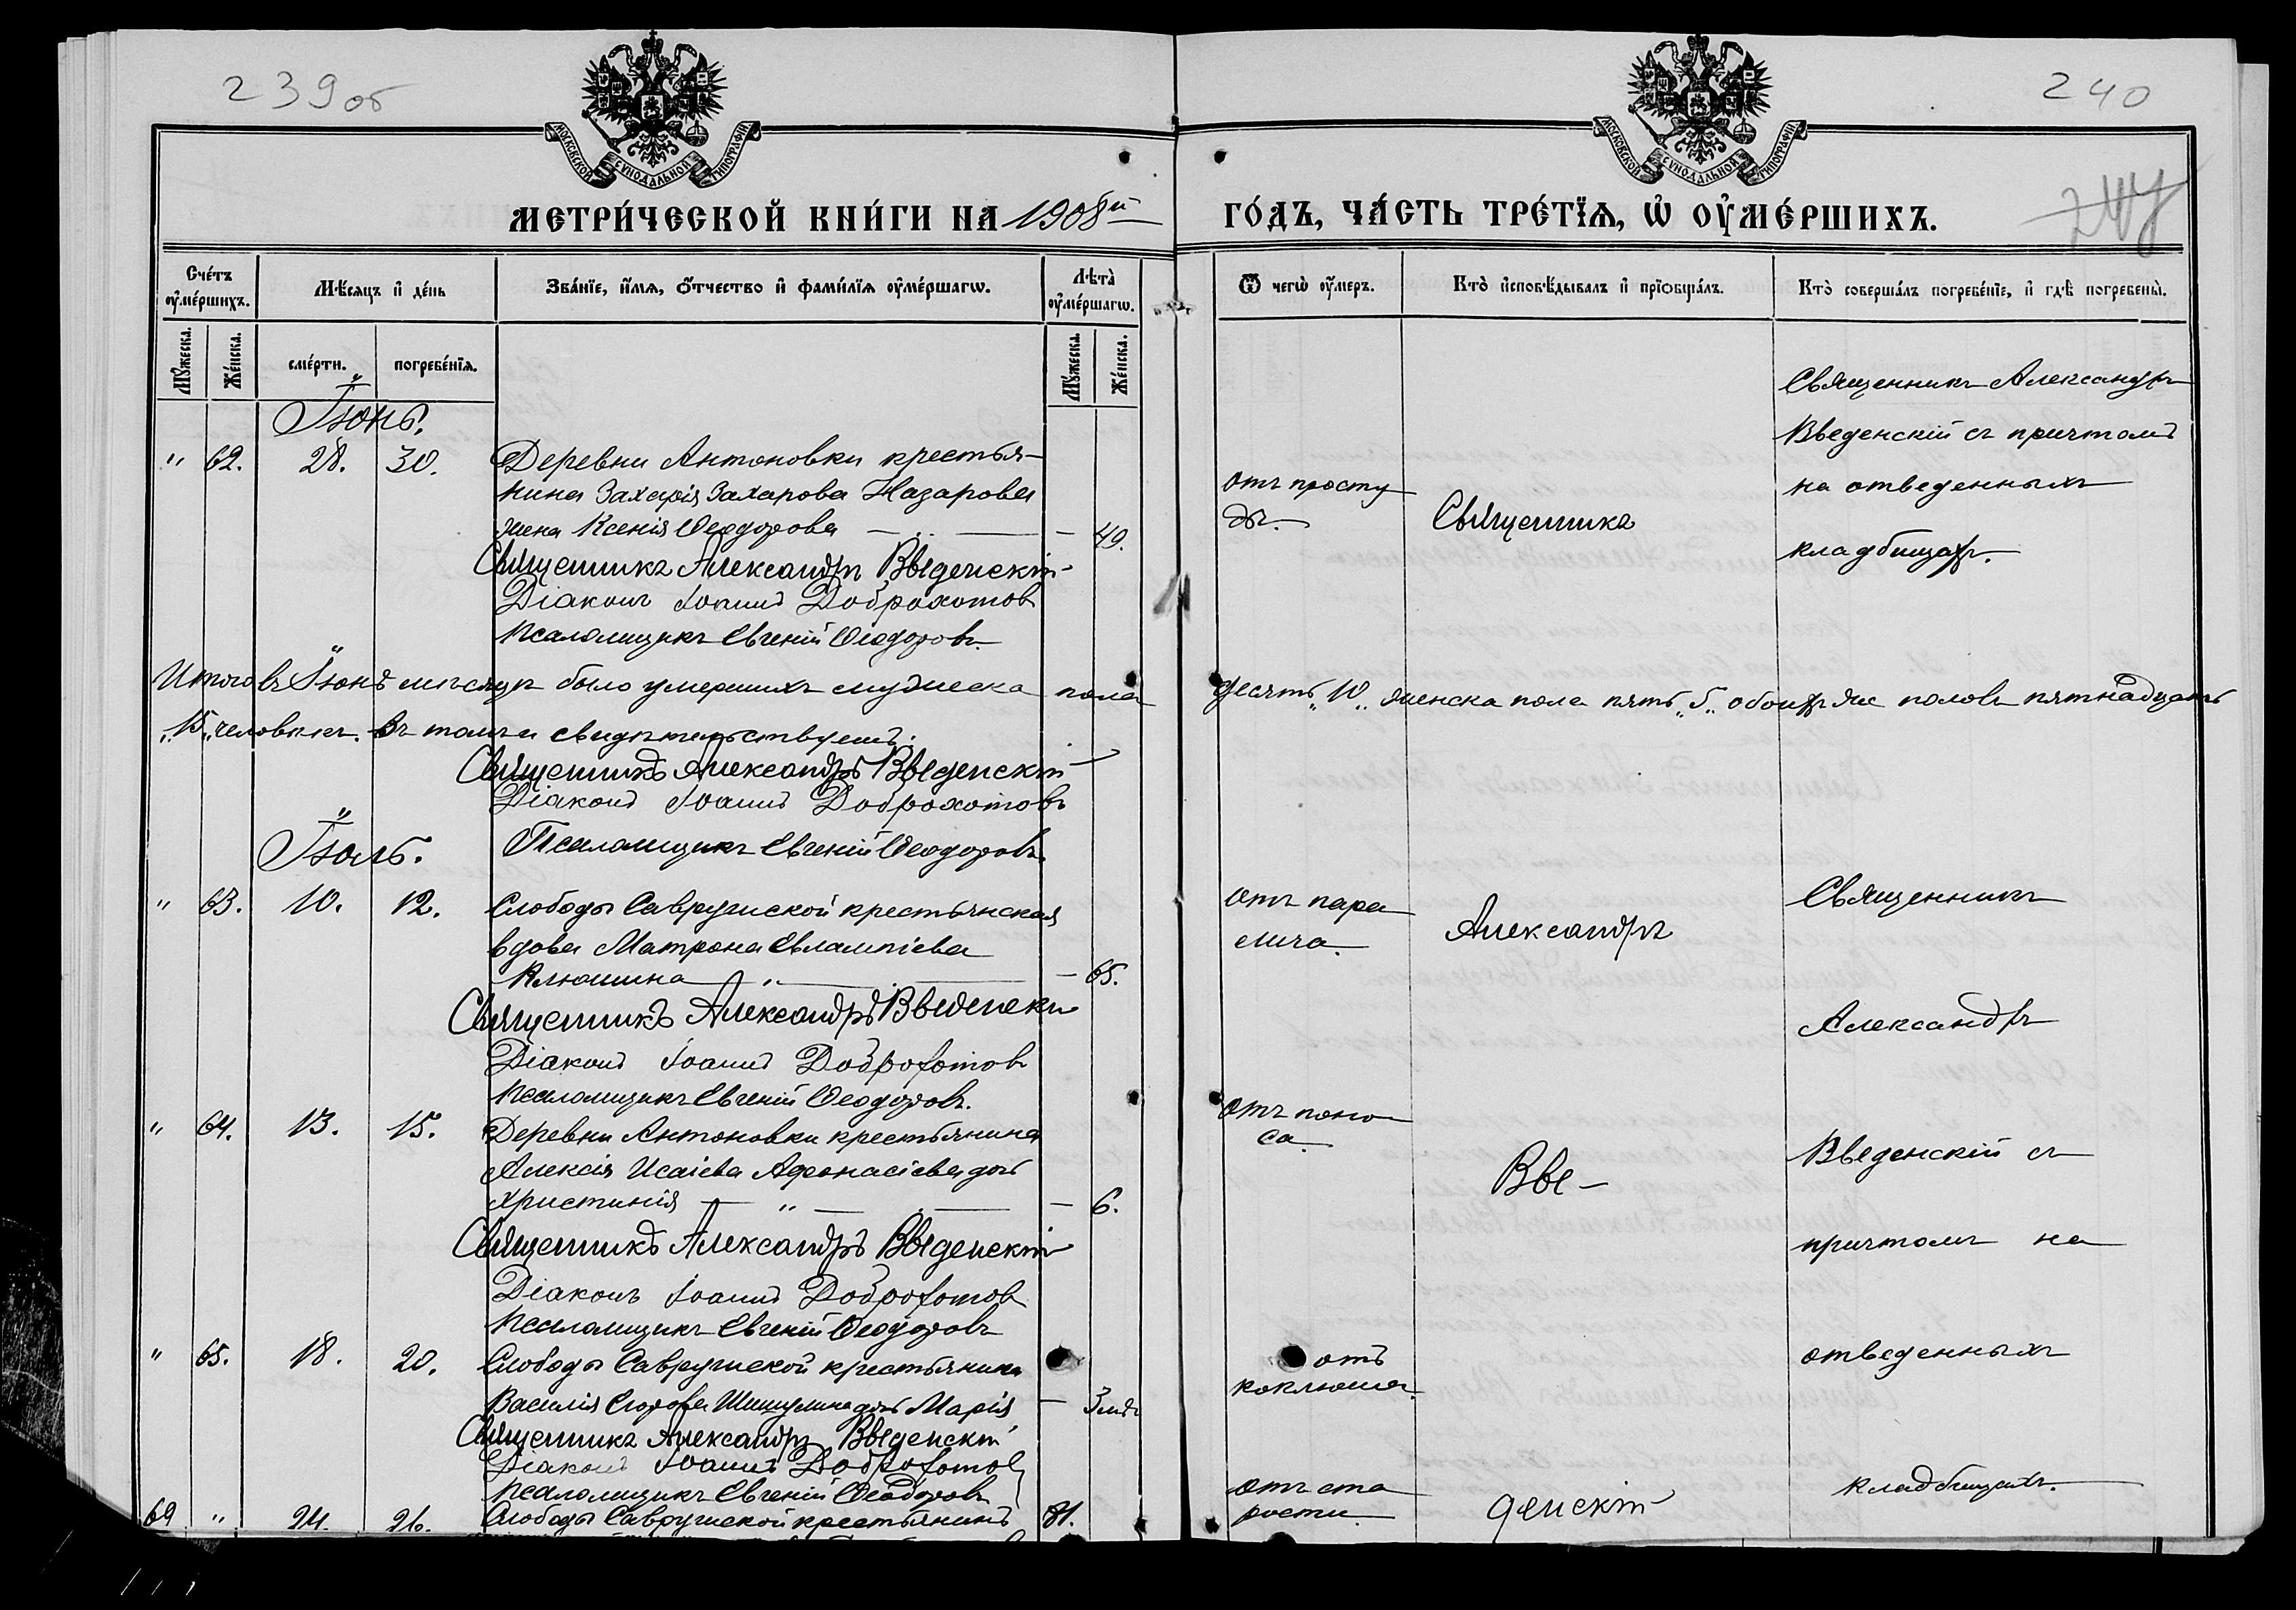 239 об
240
МОСКОВСКОЙ СУНОДАЛЬНОЙ ТИПОГРАФІИ
МОСКОВСКОЙ СУНОДАЛЬНОЙ ТИПОГРАФІИ
МЕТРИ́ЧЕСКОЙ КНИ́ГИ НА 1908й
ГО́ДЪ, ЧА́СТЬ ТРЕ́ТЇѦ, Ѡ҆ ОУ҆МЕ́РШИХЪ.
Сче́тъ оу҆ме́ршихъ.
Мѣ́сѧцъ и҆ де́нь
Зва́нїе, и҆́мѧ, ѻ҆́тчество и҆ фами́лїѧ оу҆ме́ршагѡ.
Лѣ̑та оу҆ме́ршагѡ.
Ѿ чегѡ̀ оу҆́меръ.
Кто̀ и҆сповѣ́дывалъ и҆ прїѡбща́лъ.
Кто̀ соверша́лъ погребе́нїе, и҆ гдѣ̀ погребены̀.
Мꙋ́жеска.
Же́нска.
сме́рти.
погребе́нїѧ.
Мꙋ́жеска.
Же́нска.
Іюнь.
" 62. 28. 30. Деревни Антоновки крестья-
нина Захарія Захарова Назарова
жена Ксенія Ѳеодорова — 49.
Священникъ Александръ Введенскій
Діаконъ Іоаннъ Доброхотовъ
Псаломщикъ Евгеній Ѳеодоровъ.
отъ просту
ды.
Священникъ
Священникъ Александръ
Введенскій съ причтомъ
на отведенныхъ
кладбищахъ.
Итого въ Іюнѣ мѣсяцѣ было умершихъ мужеска пола десять „10„ женска пола пять „5„ обоихъ же половъ пятнадцать
„15„ человѣкъ. Въ томъ и свидѣтельствуемъ:
Священникъ Александръ Введенскій
Діаконъ Іоаннъ Доброхотовъ
Псаломщикъ Евгеній Ѳеодоровъ.
Іюль.
" 63. 10. 12. Слободы Саврушской крестьянская
вдова Матрона Евлампіева
Клюшина — 65.
Священникъ Александръ Введенскій
Діаконъ Іоаннъ Доброхотовъ
Псаломщикъ Евгеній Ѳеодоровъ.
отъ пара
лича.
Александръ
Священникъ
Александръ
" 64. 13. 15. Деревни Антоновки крестьянина
Алексія Исаіева Афонасіева дочь
Христинія — 6.
Священникъ Александръ Введенскій
Діаконъ Іоаннъ Доброхотовъ
Псаломщикъ Евгеній Ѳеодоровъ
отъ поно
са.
Вве-
Введенскій съ
причтомъ на
" 65. 18. 20. Слободы Саврушской крестьянина
Василія Егорова Шишулина дочь Марія — 3 мѣс
Священникъ Александръ Введенскій
Діаконъ Іоаннъ Доброхотовъ
Псаломщикъ Евгеній Ѳеодоровъ
отъ
коклюша.
отведенныхъ
69 " 24. 26. Слободы Саврушской крестьянинъ 81.
отъ ста
рости.
денскій
кладбищахъ.